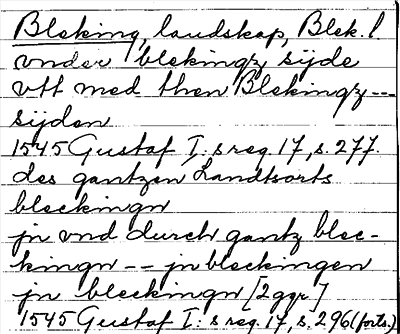 Bleking, landskap, Blek. l.
vnder blekingz sijde
vtt med then Blekingz ---
sijden
1545 Gustaf I:s reg. 17, s. 277.
des gantzen Landtsorts
bleckingn
jn vnd durch gantz blec-
kingn -- jn bleckingen
jn bleckingn [2ggr]
1545 Gustaf I:s reg. 17 s. 296 (forts.)